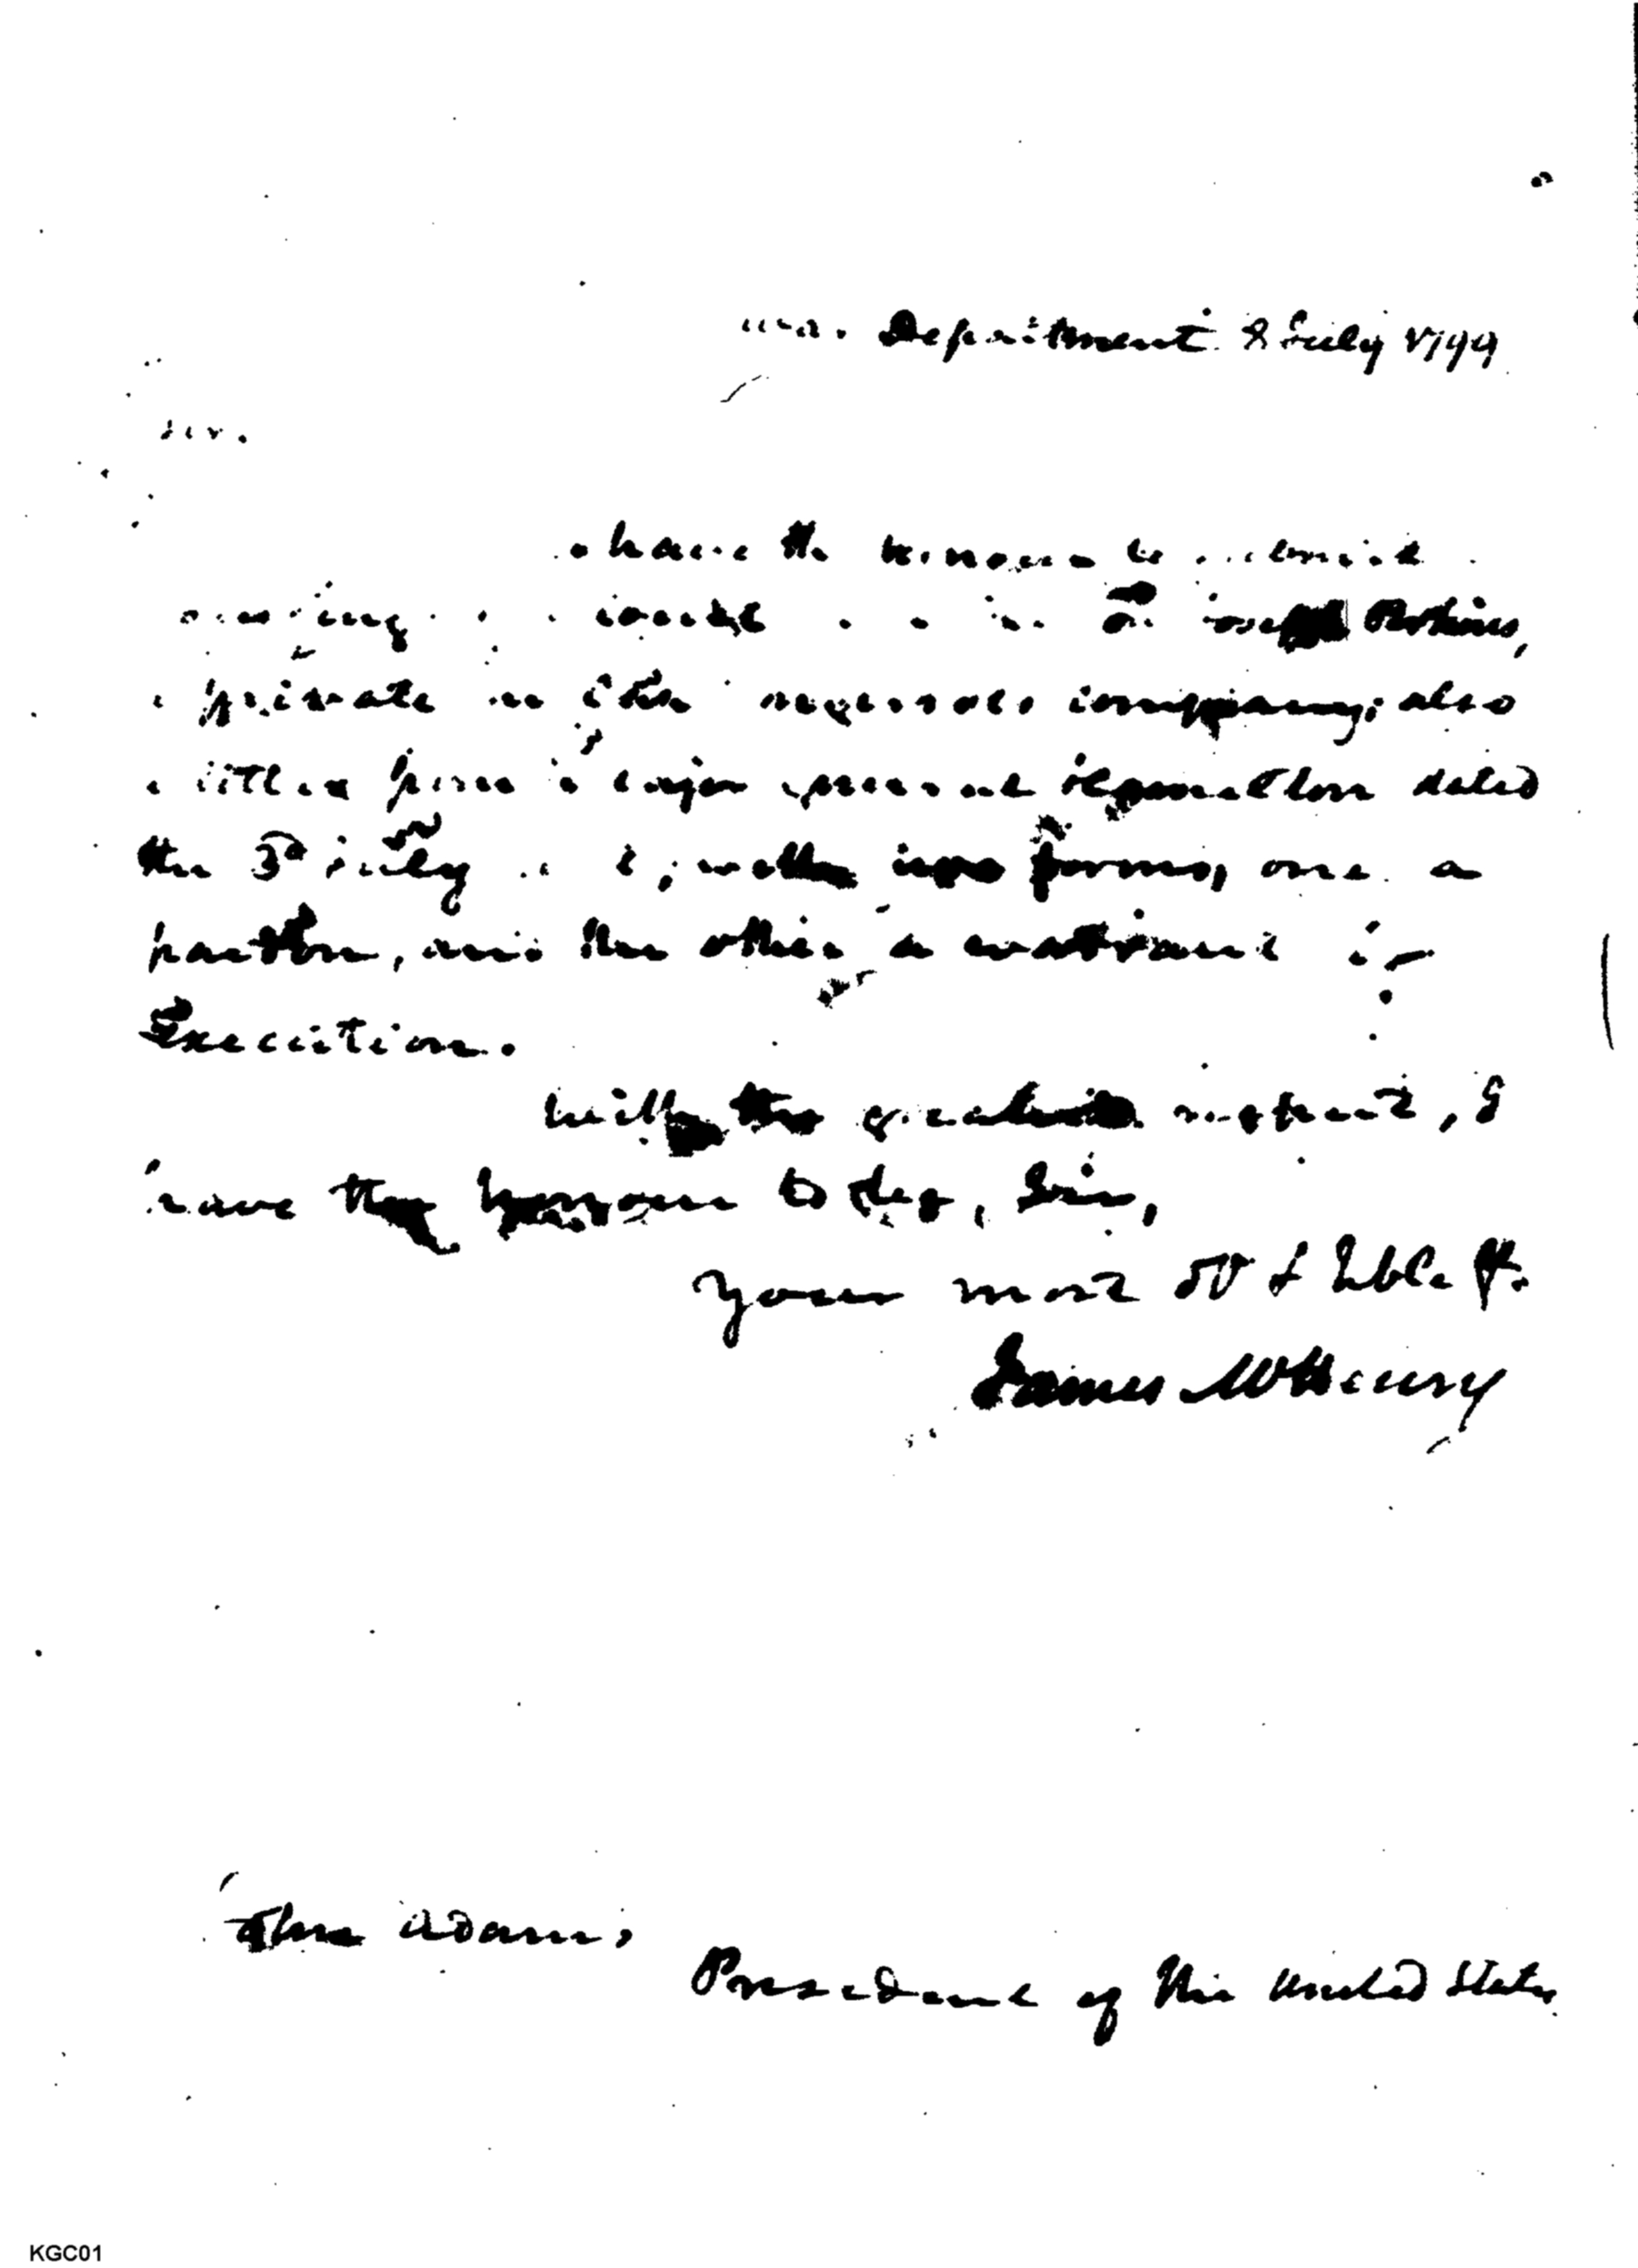 War Department 8 July 1799
Sir.
I have the honour to submit
a private in Ckn company; also
a letter from Major General Hamilton dated
the 3d July with two forms, one a
pardon, and the other a warrant for
Execution.
With the greatest respect, I
have the honour to be, Sir,
Your most Ob & hble St.
James McHenry
John Adams,
President of the United States
KGC01